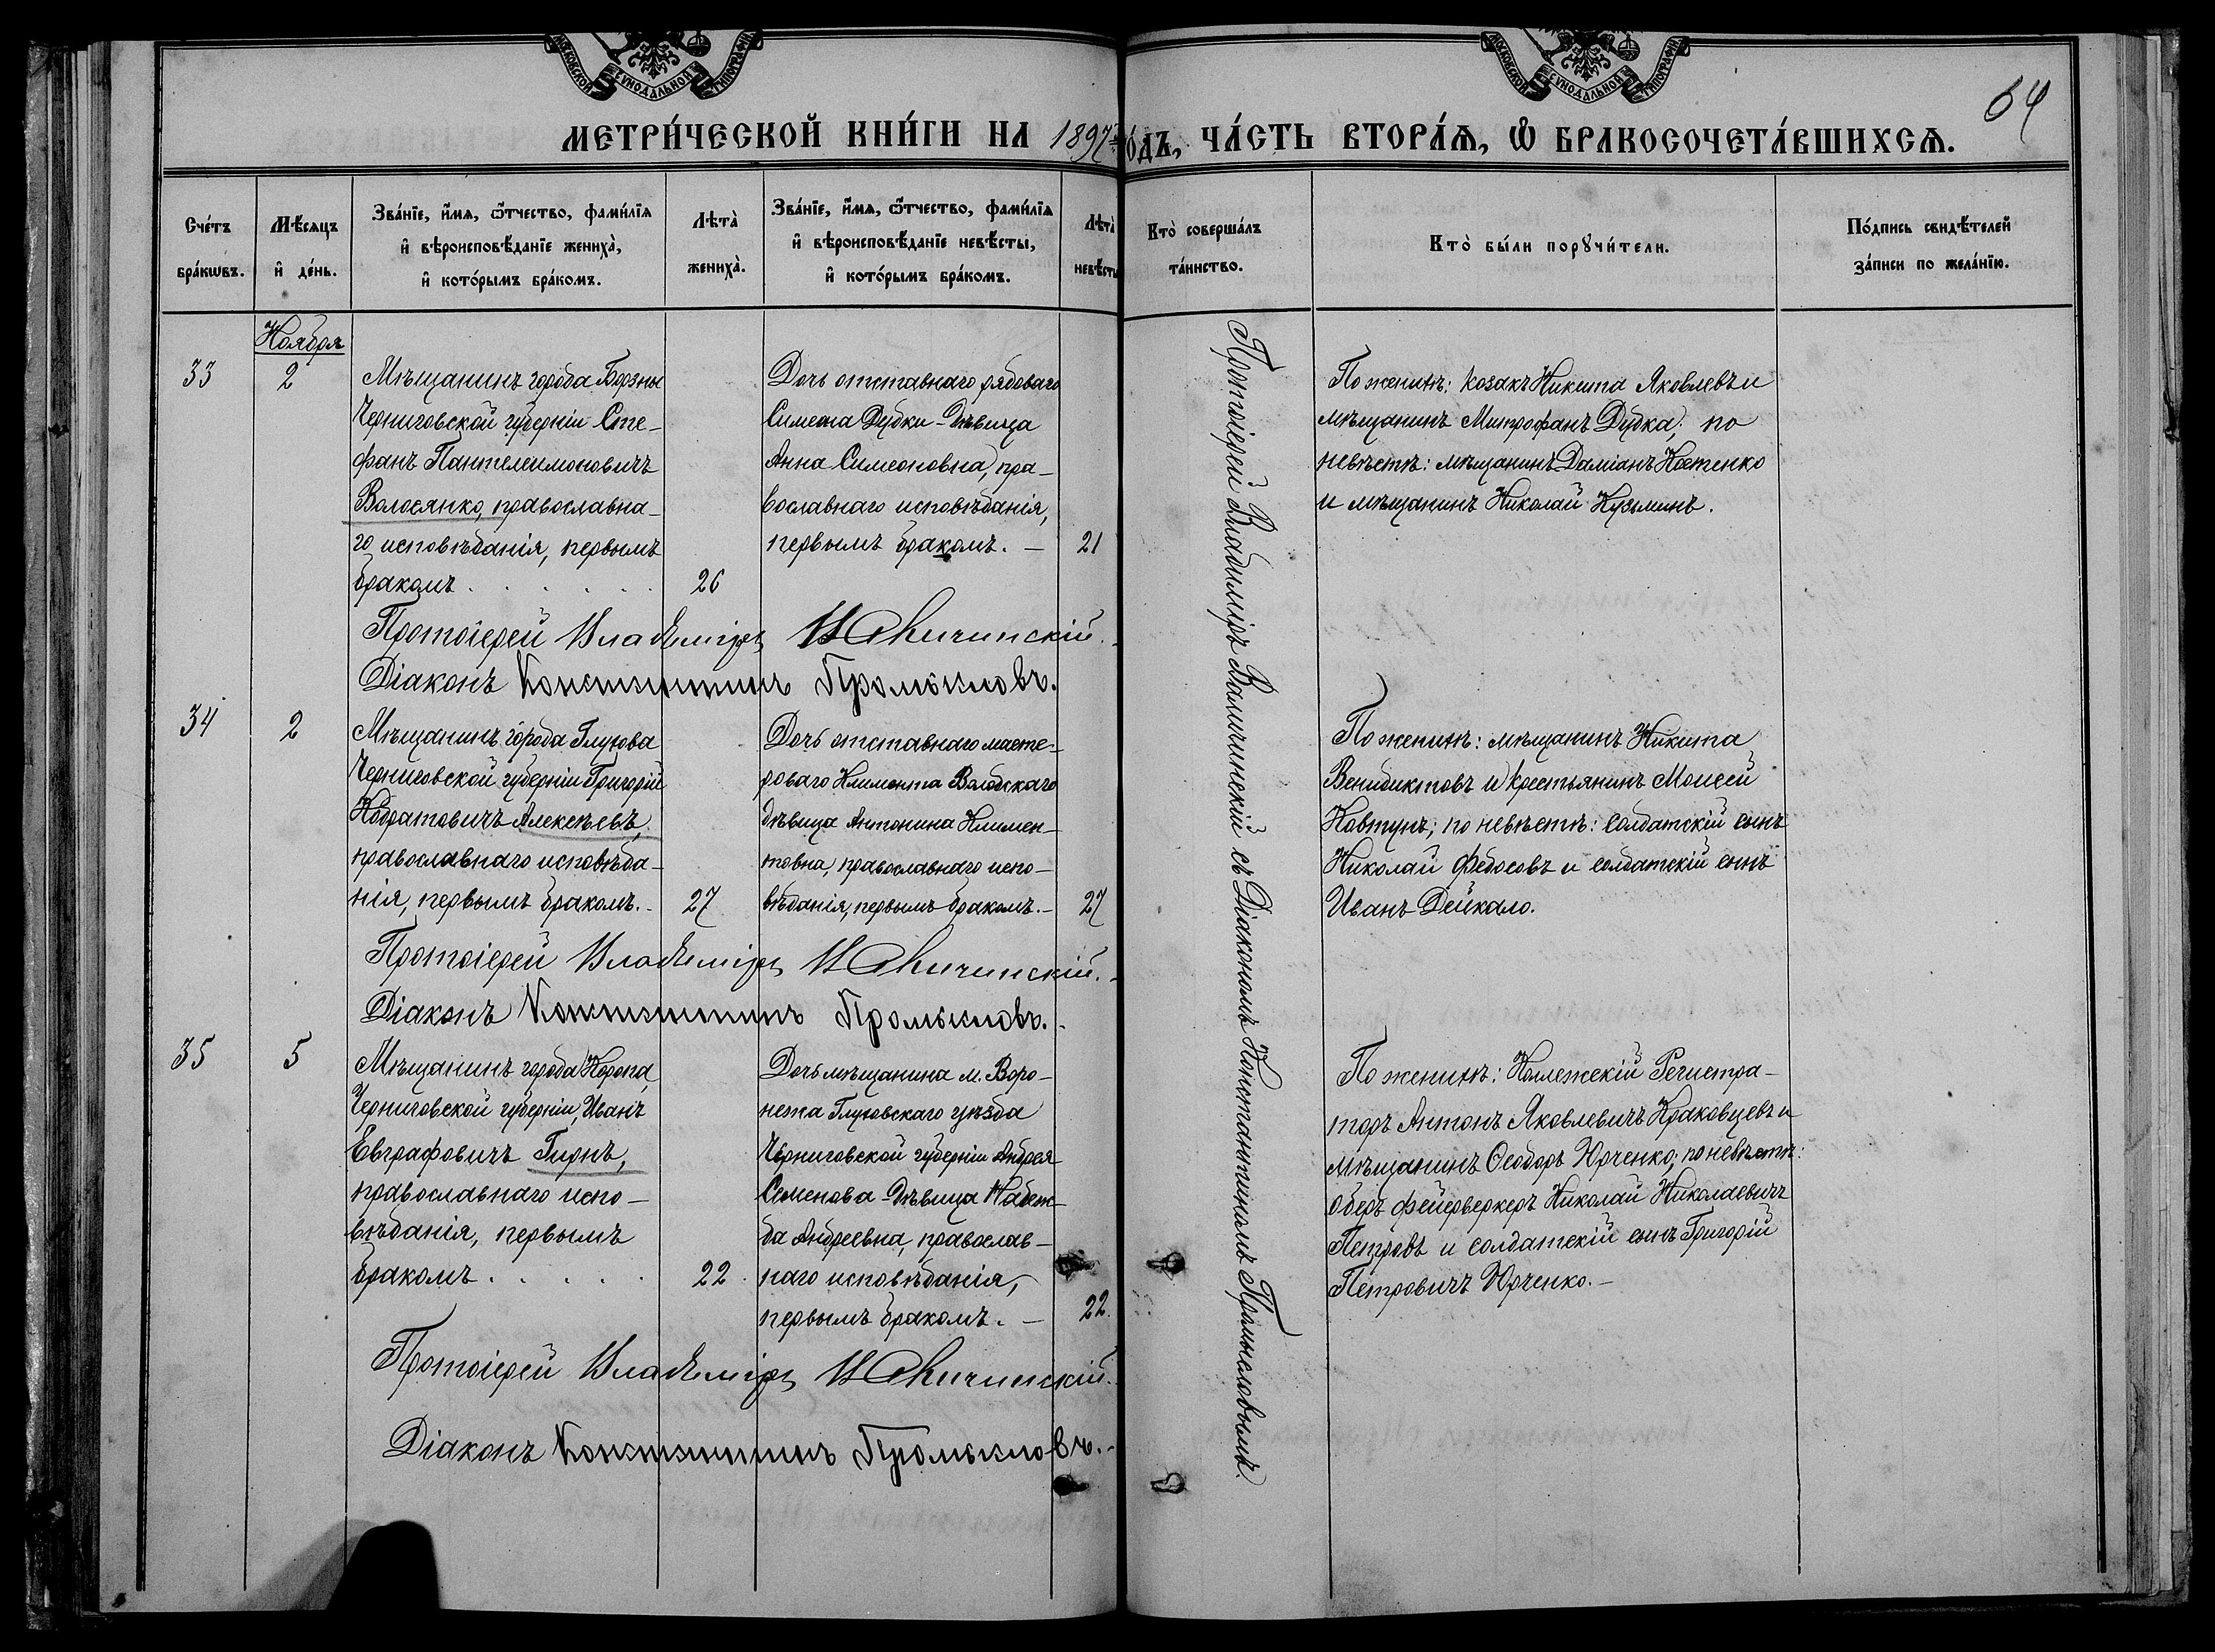 МОСКОВСКОЙ СѴНОДАЛЬНОЙ ТИПОГРАФІИ
МОСКОВСКОЙ СѴНОДАЛЬНОЙ ТИПОГРАФІИ
64
МЕТРИ́ЧЕСКОЙ КНИ́ГИ НА 1897 го́дъ, ЧА́СТЬ ВТОРА́Ѧ, Ѡ҆ БРАКОСОЧЕТА́ВШИХСѦ.
Сче́тъ
бра́кѡвъ.
Мѣ́сѧцъ
и҆ де́нь.
Зва́нїе, и҆́мѧ, ѻ҆́тчество, фами́лїѧ
и҆ вѣроисповѣ́данїе жениха̀,
и҆ кото́рымъ бра́комъ.
Лѣта̀
жениха̀.
Зва́нїе, и҆́мѧ, ѻ҆́тчество, фами́лїѧ
и҆ вѣроисповѣ́данїе невѣ́сты,
и҆ кото́рымъ бра́комъ.
Лѣта̀
невѣ́сты
Кто̀ соверша́лъ
та́инство.
Кто̀ бы́ли порꙋчи́тели.
По́дпись свидѣ́телей
за́писи по жела́нїю.
Ноября
33
2
Мѣщанинъ города Борзны
Черниговской губерніи Сте-
фанъ Пантелеимоновичъ
Волосянко, православна-
го исповѣданія, первымъ
бракомъ . . . . . .
26
Дочь отставнаго рядоваго
Симеона Дубки - дѣвица
Анна Симеоновна, пра-
вославнаго исповѣданія,
первымъ бракомъ. —
21
По женихѣ: козакъ Никита Яковлевъ и
мѣщанинъ Митрофанъ Дубка; по
невѣстѣ: мѣщанинъ Даміанъ Костенко
и мѣщанинъ Николай Кузьминъ.
Протоіерей Владиміръ
Діаконъ Константинъ Промысловъ.
34
2
Мѣщанинъ города Глухова
Черниговской губерніи Григорій
Кодратовичъ Алексѣевъ,
православнаго исповѣда-
нія, первымъ бракомъ. -
27
Дочь отставнаго масте-
роваго Климента
дѣвица Антонина Климен-
товна, православнаго испо-
вѣданія, первымъ бракомъ. -
27
По женихѣ: мѣщанинъ Никита
Венидиктовъ и крестьянинъ Моисей
Ковтунъ; по невѣстѣ: солдатскій сынъ
Николай Федосовъ и солдатскій сынъ
Иванъ Дейкало.
Протоіерей Владиміръ
Діаконъ Константинъ Промысловъ.
35
5
Мѣщанинъ города Коропа,
Черниговской губерніи, Иванъ
Евграфовичъ Гирнъ,
православнаго испо-
вѣданія, первымъ
бракомъ . . . . .
22
Дочь мѣщанина м. Воро-
нежа Глуховскаго уѣзда
Черниговской губерніи Андрея
Семенова - дѣвица Надеж-
да Андреевна, православ-
наго исповѣданія,
первымъ бракомъ. —
22.
По женихѣ: Коллежскій Регистра-
торъ Антонъ Яковлевичъ Краковцевъ и
мѣщанинъ Ѳеодоръ Юрченко; по невѣстѣ:
Оберъ фейерверкеръ Николай Николаевичъ
Петровъ и солдатскій сынъ Григорій
Петровичъ Юрченко. —
Протоіерей Владиміръ
Діаконъ Константинъ Промысловъ. -
Протоіерей Владиміръ съ Діакономъ Константиномъ Промысловымъ.